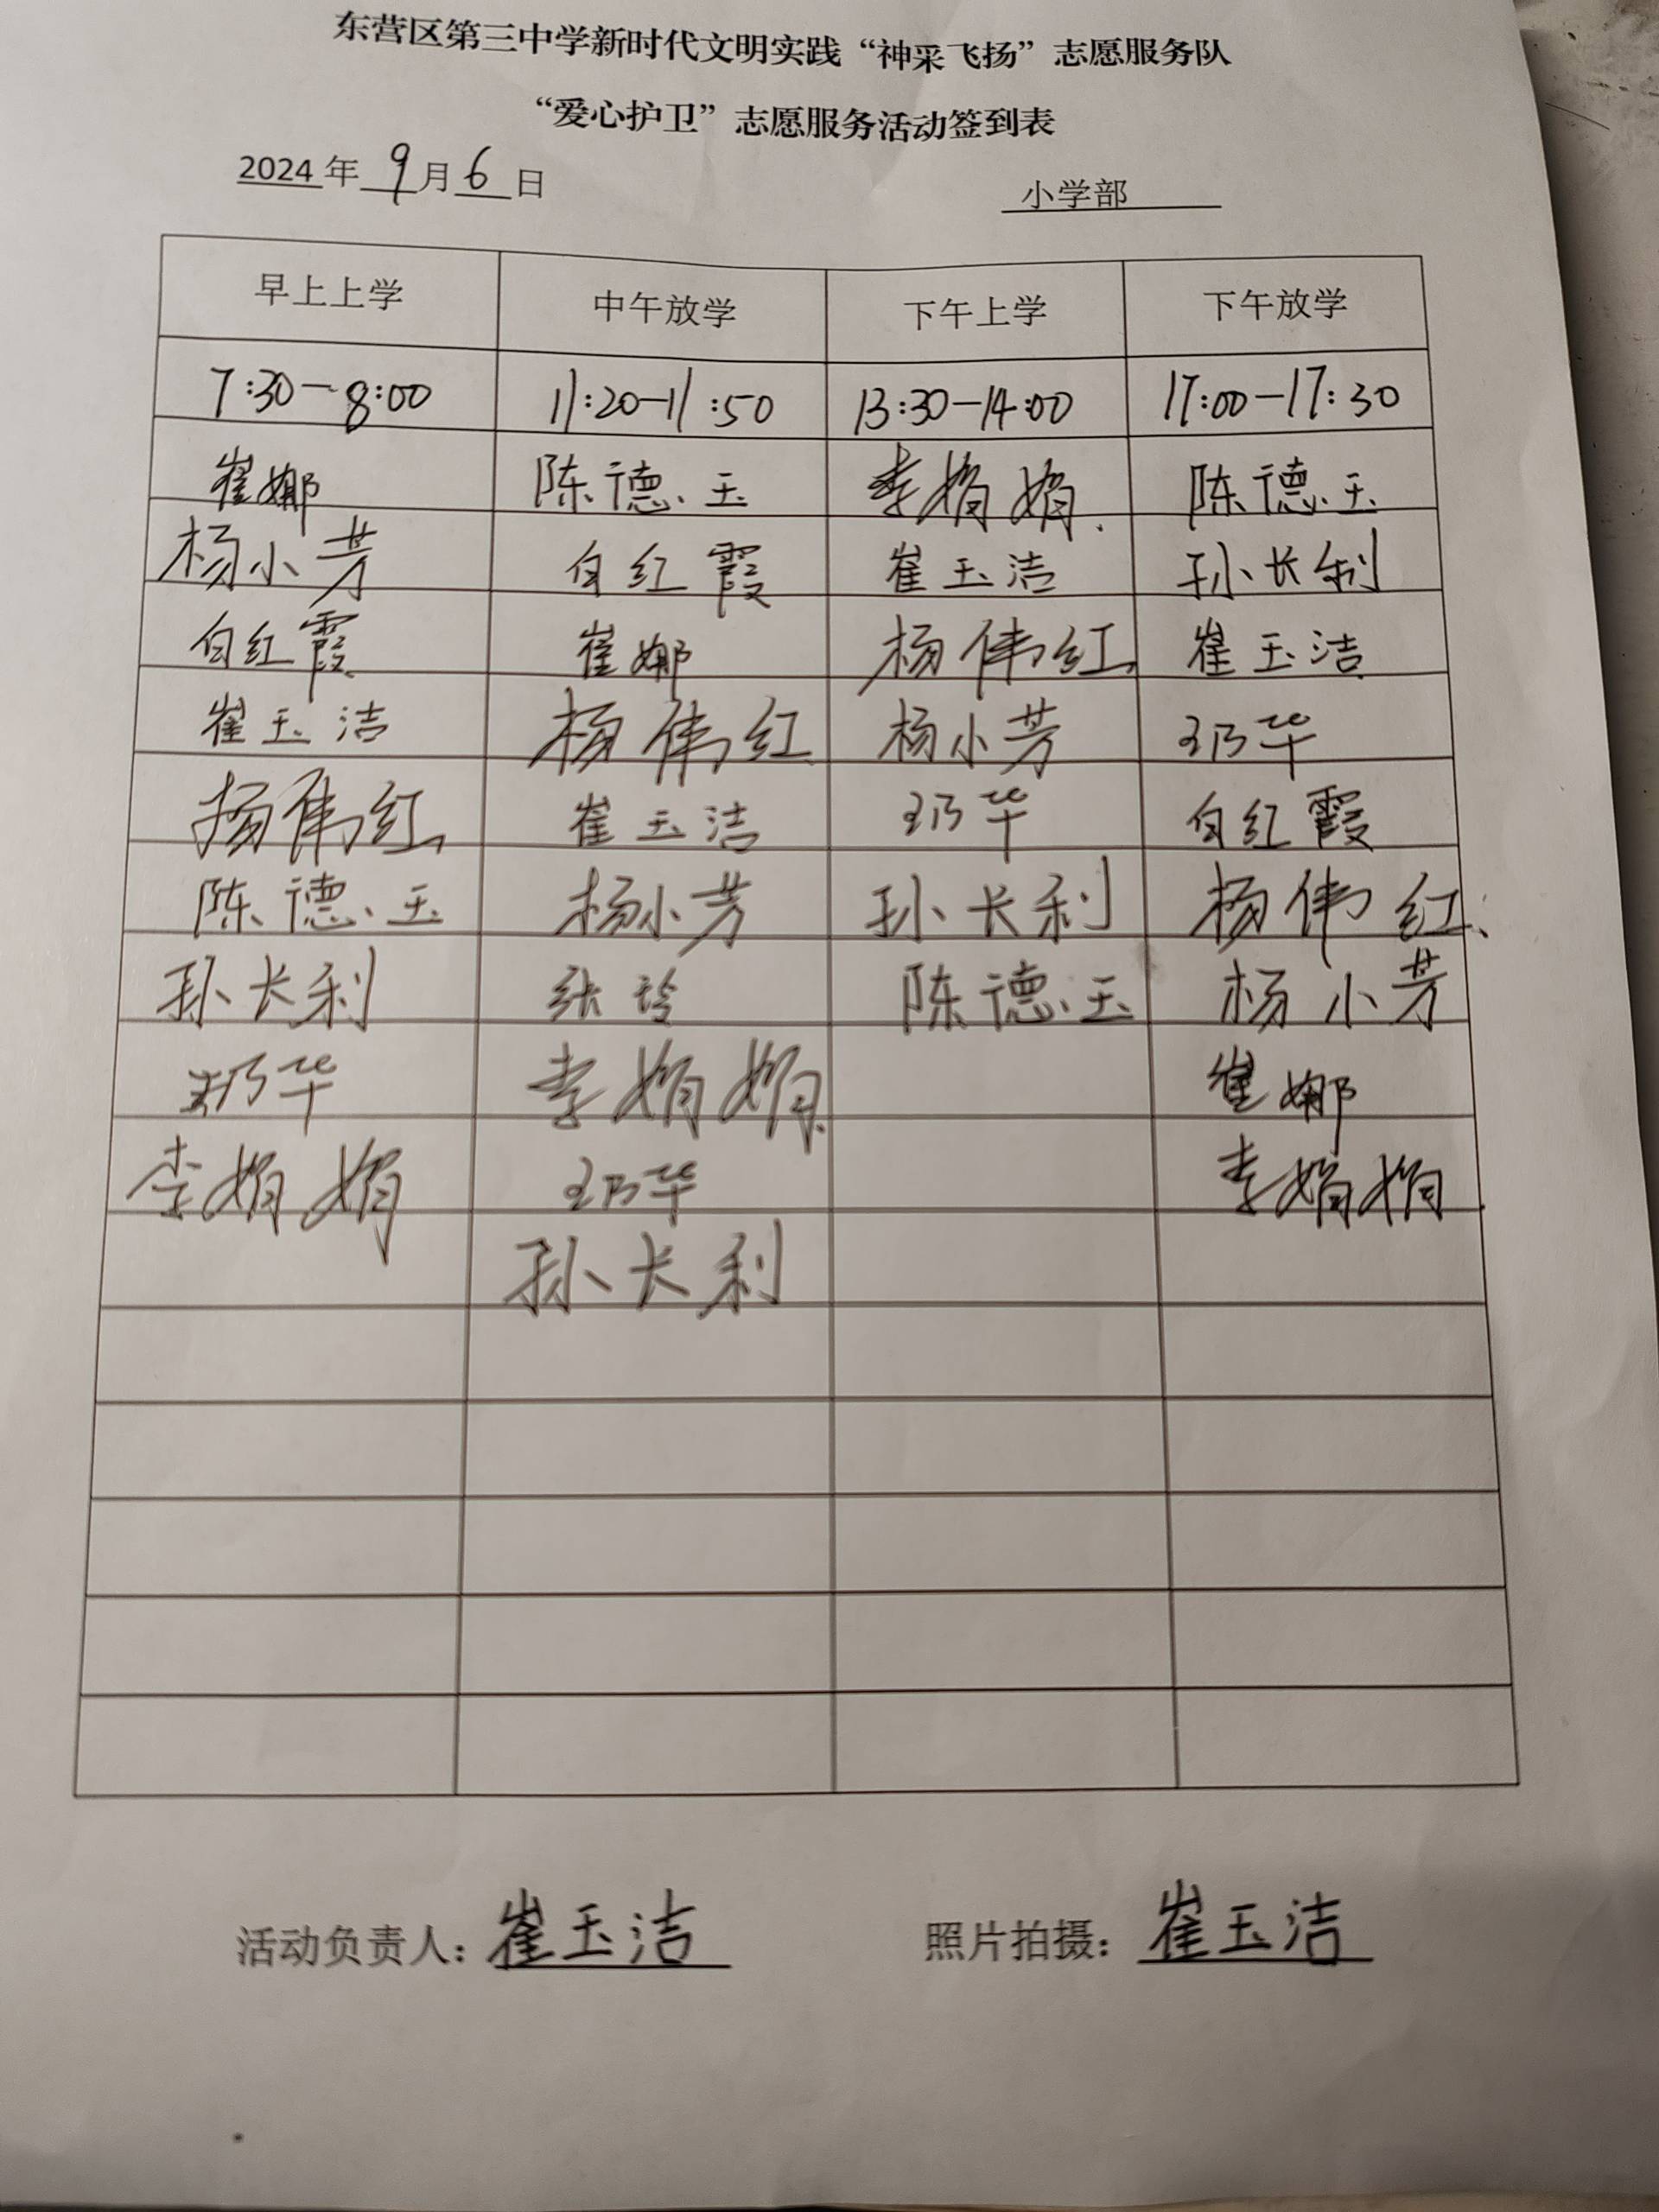 东营区第三中学新时代文明实践“神采飞扬”志愿服务队
“爱心护卫”志愿服务活动签到表
2024年 9月6日 小学部
早上上学 中午放学 下午上学 下午放学
7:30-8:00 11:20-11:50 13:30-14:00 17:00-17:30
崔娜 陈德玉 李娟娟 陈德玉
杨小芳 白红霞 崔玉洁 孙长利
白红霞 崔娜 杨伟红 崔玉洁
崔玉洁 杨伟红 杨小芳 王乃华
杨伟红 崔玉洁 王乃华 白红霞
陈德玉 杨小芳 孙长利 杨伟红
孙长利 张玲 陈德玉 杨小芳
王乃华 李娟娟 崔娜
李娟娟 王乃华 李娟娟
孙长利
活动负责人：崔玉洁 照片拍摄：崔玉洁